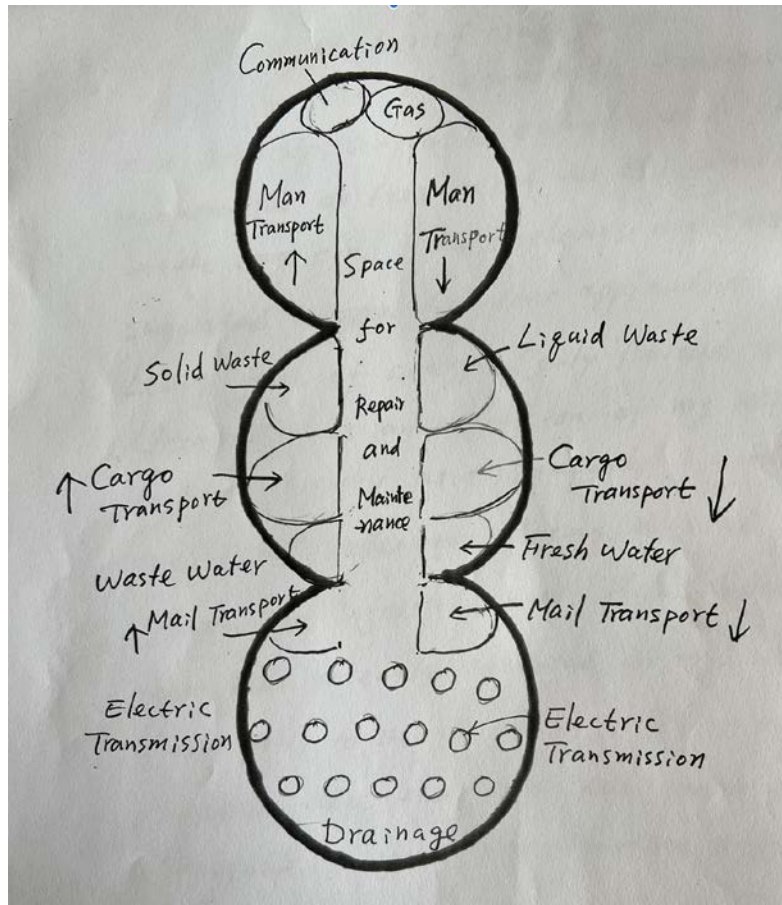 Communication
Gas
Man
Transport
↑
Man
Transport
↓
Space
for
Repair
and
Mainte
-nance
Solid Waste
Liquid Waste
↑ Cargo
Transport
Cargo
Transport ↓
Waste Water
Fresh Water
↑ Mail Transport
Mail Transport ↓
Electric
Transmission
Electric
Transmission
Drainage